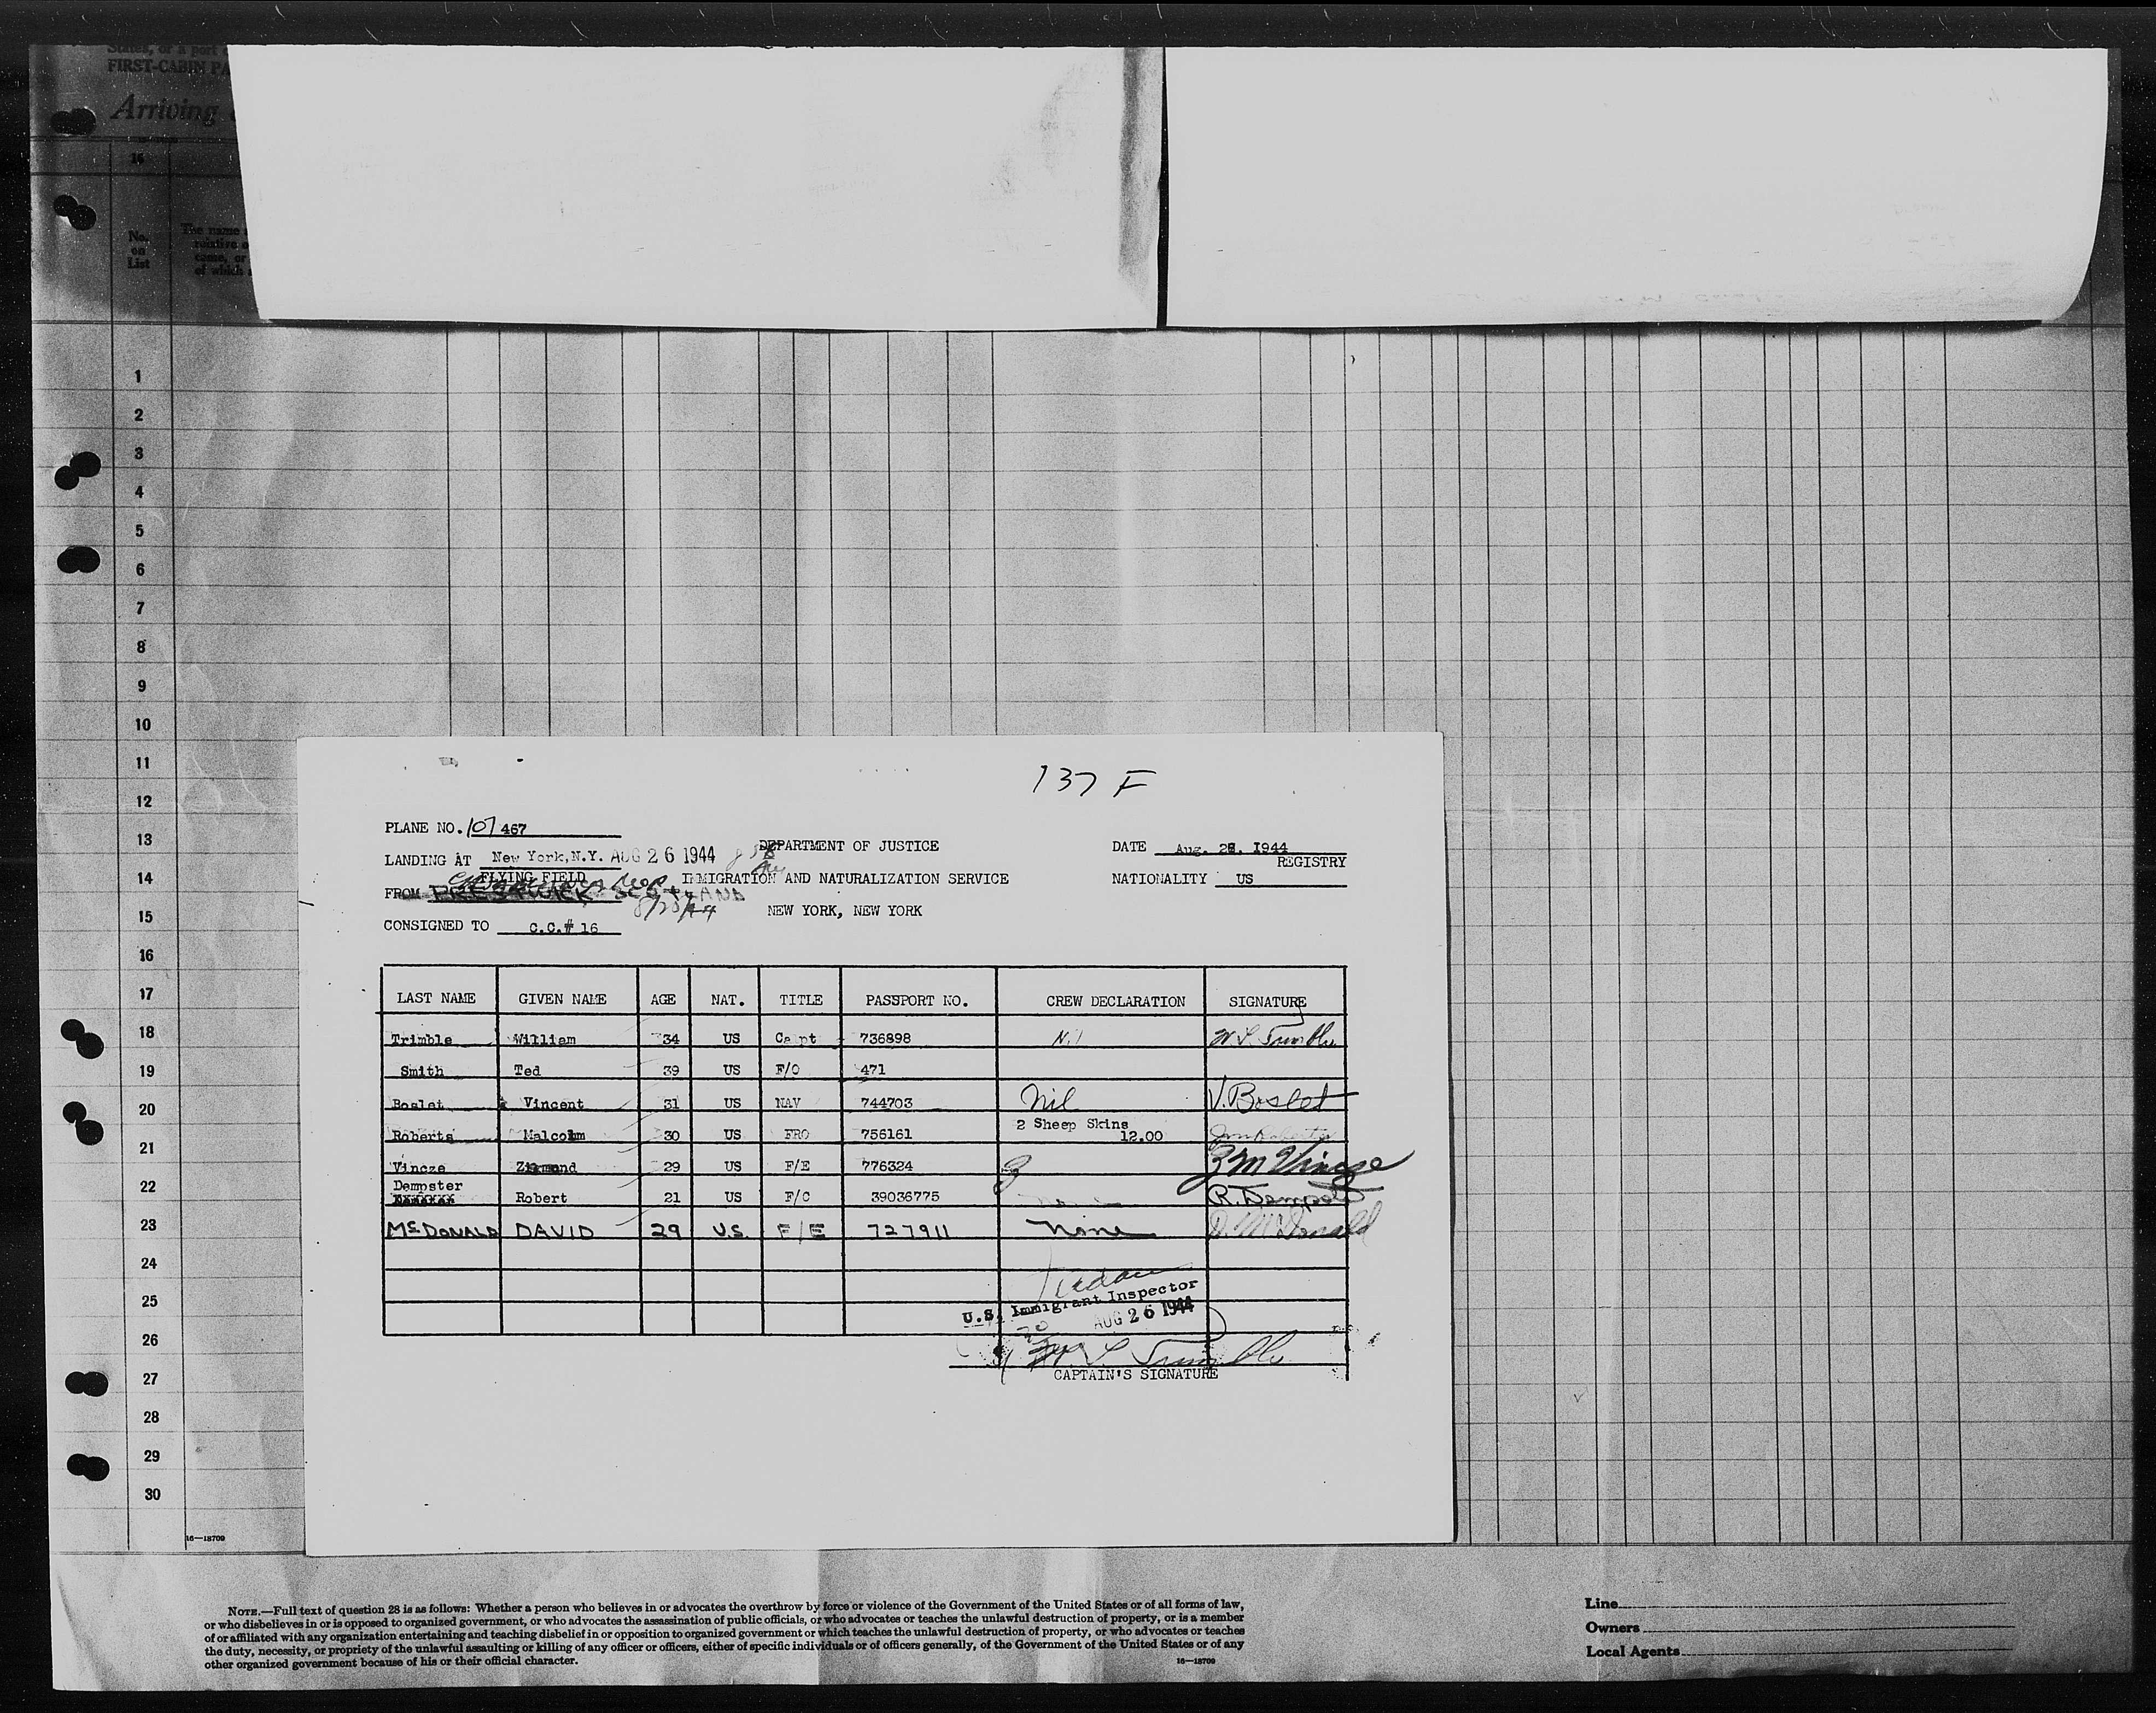 States, or a port
FIRST-CABIN PA
Arriving
16
No.
on
List
The name
relative o
came, or
of which
1
2
3
4
5
6
7
8
9
10
11
12
13
14
15
16
17
18
19
20
21
22
23
24
25
26
27
28
29
30
16—18709
137 F
PLANE NO. 107 467
LANDING AT New York, N.Y. AUG 26 1944
FLYING FIELD
FROM
CONSIGNED TO C.C.# 16
DEPARTMENT OF JUSTICE
IMMIGRATION AND NATURALIZATION SERVICE
NEW YORK, NEW YORK
DATE Aug. 28, 1944
REGISTRY
NATIONALITY US
LAST NAME GIVEN NAME AGE NAT. TITLE PASSPORT NO. CREW DECLARATION SIGNATURE
Trimble William 34 US Capt 736898 Nil W L Trimble
Smith Ted 39 US F/O 471
Boslet Vincent 31 US NAV 744703 Nil V. Boslet
Roberts Malcolm 30 US FRO 756161 2 Sheep Skins 12.00
Vincze 29 US F/E 776324 Z M Vincze
Dempster Robert 21 US F/C 39036775 R. Dempster
McDONALD DAVID 29 U.S. F/E 727911 None D. McDonald
U.S. Immigrant Inspector
AUG 26 1944
W. L. Trimble
CAPTAIN'S SIGNATURE
NOTE.—Full text of question 28 is as follows: Whether a person who believes in or advocates the overthrow by force or violence of the Government of the United States or of all forms of law,
or who disbelieves in or is opposed to organized government, or who advocates the assassination of public officials, or who advocates or teaches the unlawful destruction of property, or is a member
of or affiliated with any organization entertaining and teaching disbelief in or opposition to organized government or which teaches the unlawful destruction of property, or who advocates or teaches
the duty, necessity, or propriety of the unlawful assaulting or killing of any officer or officers, either of specific individuals or of officers generally, of the Government of the United States or of any
other organized government because of his or their official character.
16—18709
Line
Owners
Local Agents